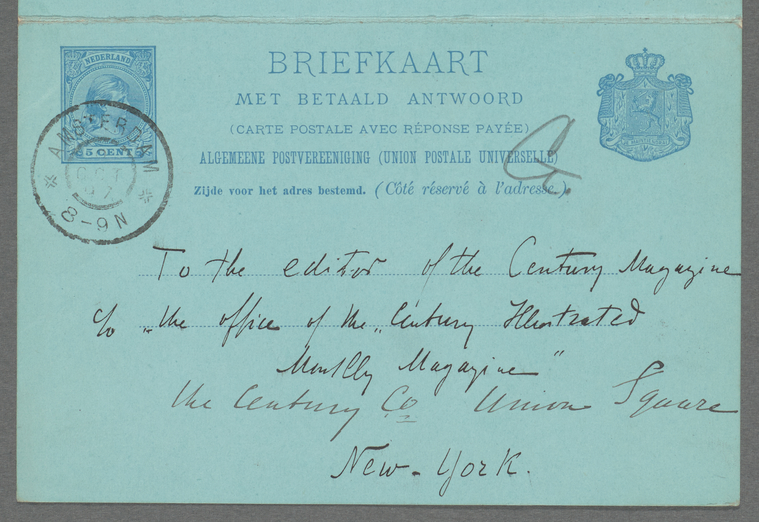 NEDERLAND
5 CENT 5
AMSTERDAM
OCT
97
8-9N
BRIEFKAART
MET BETAALD ANTWOORD
(CARTE POSTALE AVEC RÉPONSE PAYÉE)
ALGEMEENE POSTVEREENIGING (UNION POSTALE UNIVERSELLE)
Zijde voor het adres bestemd. (Côté réservé à l'adresse.)
To the editor of the Century Magazine
c/o „the office of the „Century Illustrated
Monthly Magazine"
the Century Co Union Square
New-York.